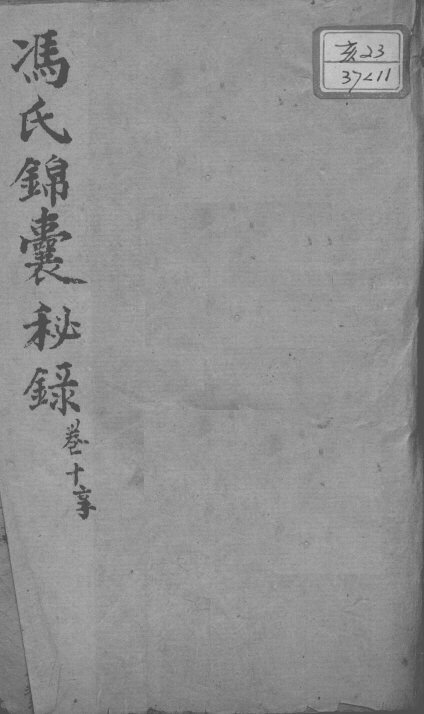 馮氏錦囊秘錄
卷十
亥23
37211